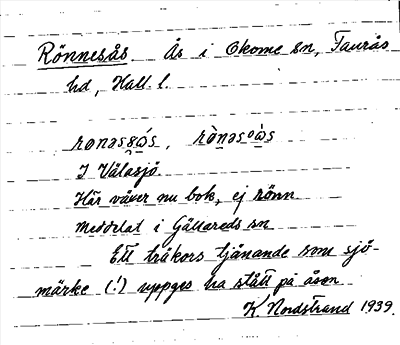 Rönnesås Ås i Okome sn, Faurås
hd, Hall. l.
I Välasjö
Här växer nu bok, ej rönn
Meddelat i Gällareds sn
Ett träkors tjänande som sjö-
märke (!) uppges ha stått på åsen
K Nordstrand 1939.